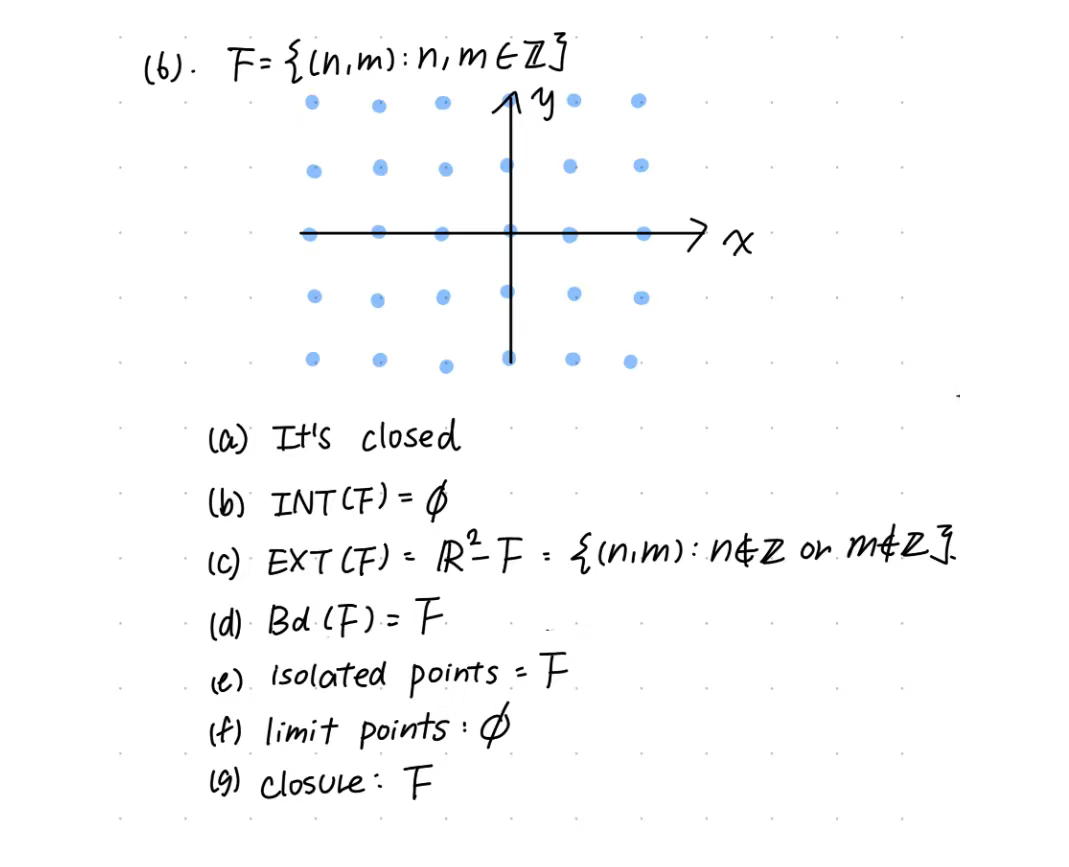 (6). F = {(n,m) : n, m ∈ ℤ}
y
x
(a) It's closed
(b) INT(F) = ∅
(c) EXT(F) = ℝ² - F = {(n,m) : n ∉ ℤ or m ∉ ℤ}.
(d) Bd(F) = F
(e) isolated points = F
(f) limit points : ∅
(g) closure : F